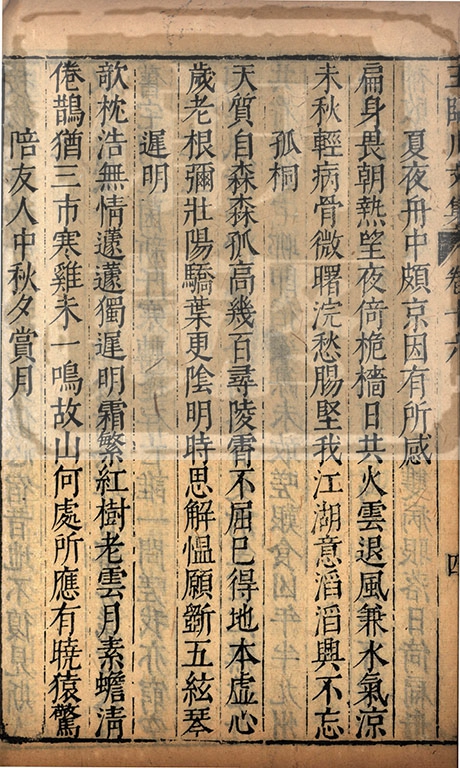 王臨川文集 卷十六 四
夏夜舟中頗涼因有所感
扁舟畏朝熱望夜倚桅檣日共火雲退風兼水氣涼
未秋輕病骨微曙浣愁腸堅我江湖意滔滔興不忘
孤桐
天質自森森孤高幾百尋陵霄不屈已得地本虛心
歲老根彌壯陽驕葉更陰明時思解慍願斵五絃琴
遲明
欹枕浩無情蘧蘧獨遲明霜繁紅樹老雲月素蟾清
倦鵲猶三市寒雞未一鳴故山何處所應有曉猿驚
陪友人中秋夕賞月